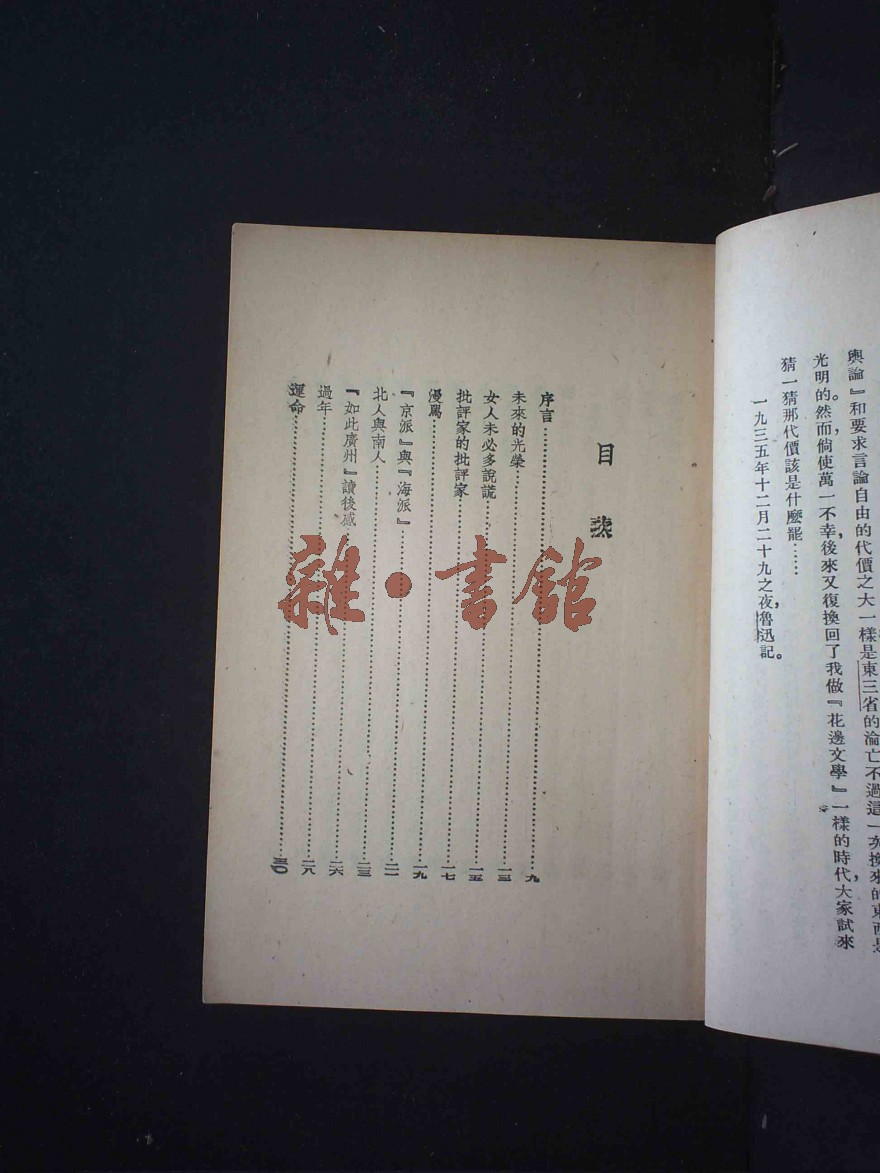 輿論』和要求言論自由的代價之大一樣是東三省的淪亡不過這一次換來的東西是
光明的。然而倘使萬一不幸，後來又復換回了我做『花邊文學』一樣的時代，大家試來
猜一猜那代價該是什麼罷……
一九三五年十二月二十九之夜，魯迅記。
目次
序言……九
未來的光榮……一三
女人未必多說謊……一五
批評家的批評家……一七
漫罵……一九
『京派』與『海派』……二一
北人與南人……二三
『如此廣州』讀後感……二六
過年……二八
運命……三〇
雜·書館